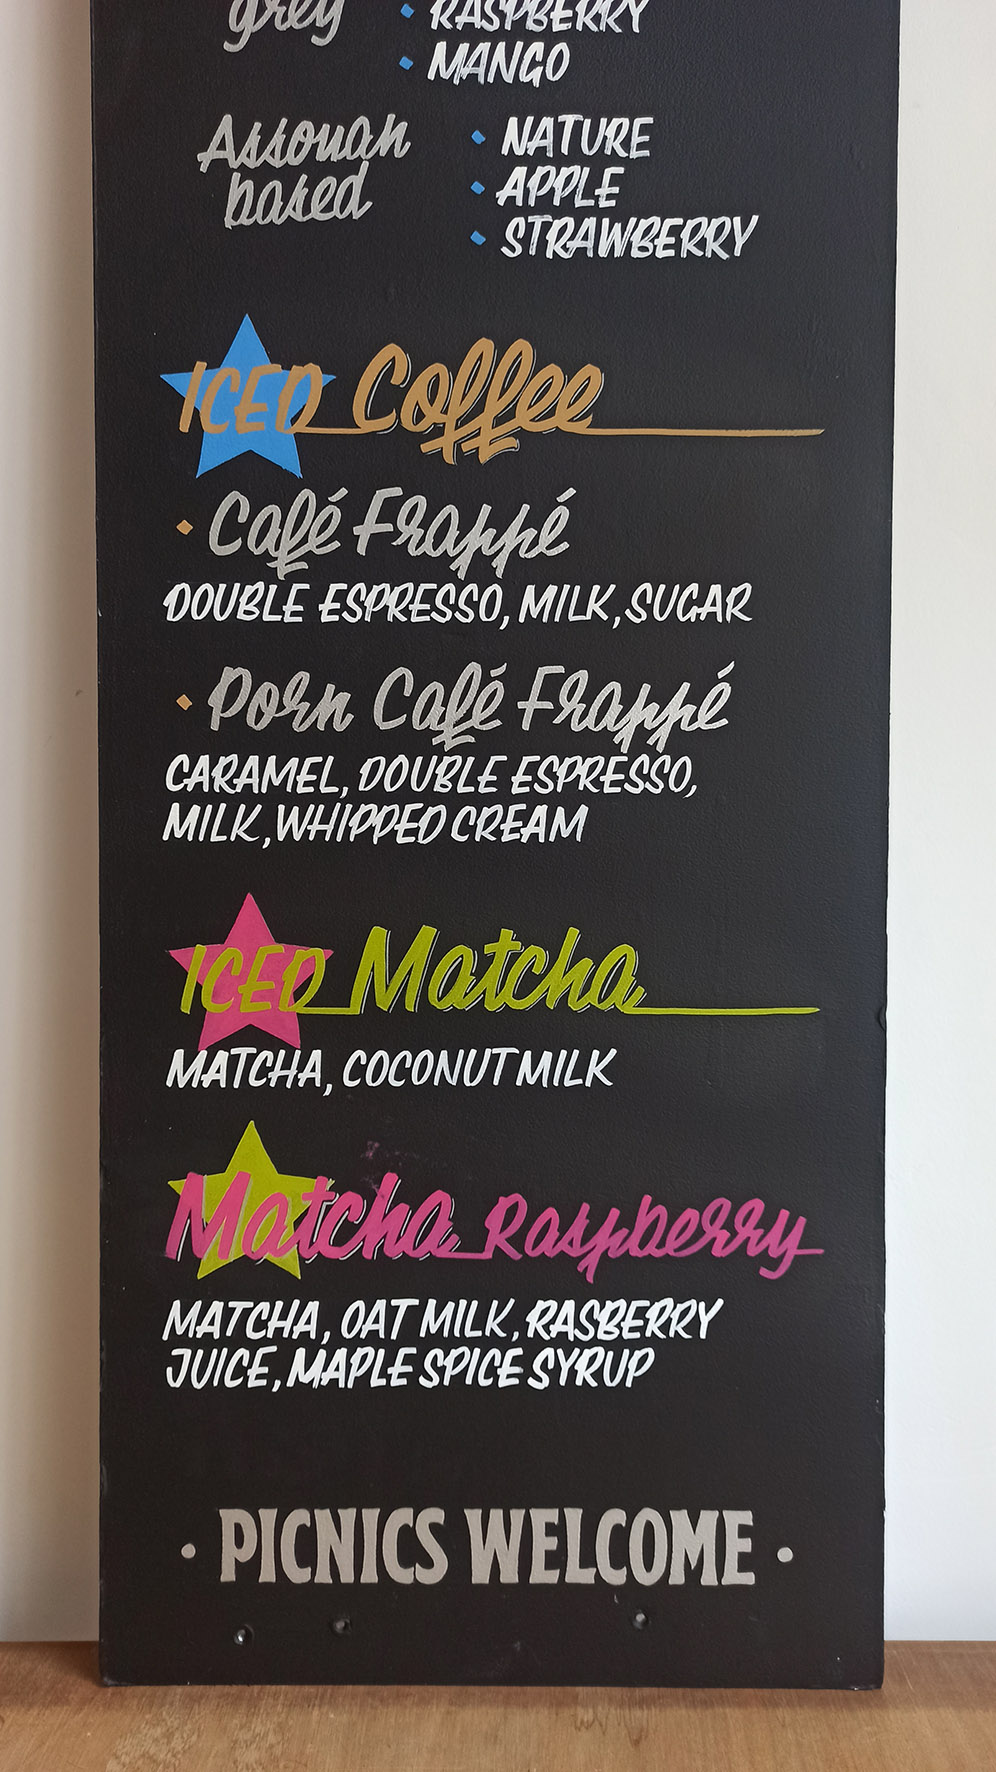 grey
• RASPBERRY
• MANGO
Assouan
based
• NATURE
• APPLE
• STRAWBERRY
ICED Coffee
• Café Frappé
DOUBLE ESPRESSO, MILK, SUGAR
• Porn Café Frappé
CARAMEL, DOUBLE ESPRESSO,
MILK, WHIPPED CREAM
ICED Matcha
MATCHA, COCONUT MILK
Matcha Raspberry
MATCHA, OAT MILK, RASBERRY
JUICE, MAPLE SPICE SYRUP
• PICNICS WELCOME •